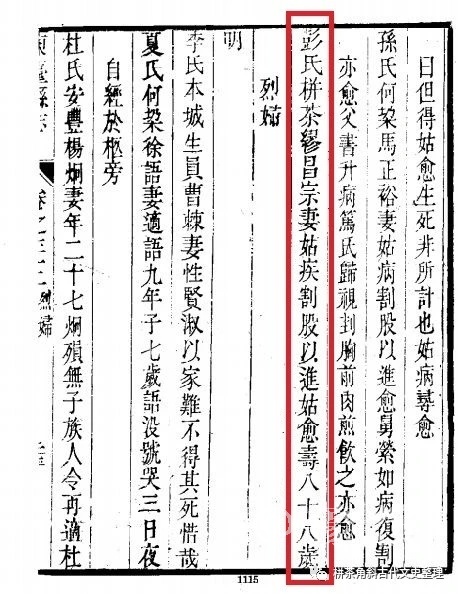 曰但得姑愈生死非所計也姑病尋愈
孫氏何垜馬正裕妻姑病割股以進愈舅縈如病復割
亦愈父書升病篤氏歸視刲胸前肉煎飲之亦愈
彭氏栟茶繆昌宗妻姑疾割股以進姑愈壽八十八歲
烈婦
明
李氏本城生員曹棘妻性賢淑以家難不得其死惜哉
夏氏何垜徐語妻適語九年子七歲語没號哭三日夜
自經於柩旁
杜氏安豐楊炯妻年二十七炯殞無子族人令再適杜
東臺縣志
卷之三十二 烈婦
1115
栟茶角斜古代文史整理